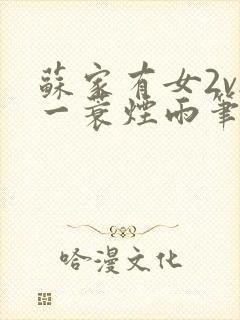 蘇家有女2v
一蓑煙雨筆
哈漫文化